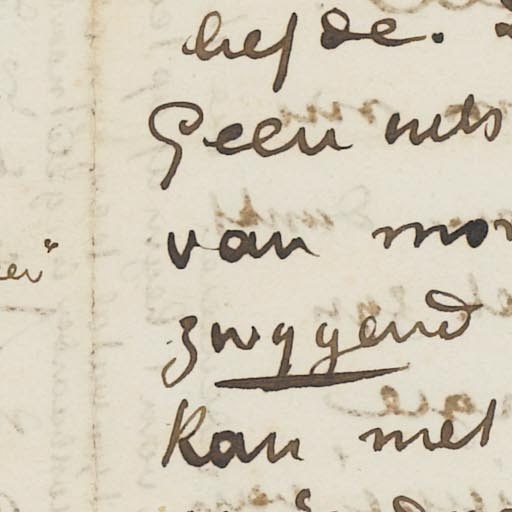 liefde.
Geen niets
van mo
zwygend
Kan met